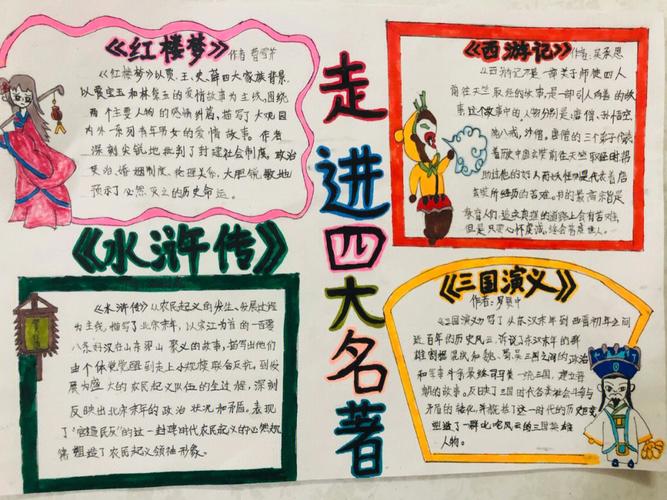 走进四大名著
《红楼梦》 作者 曹雪芹
《红楼梦》以贾、王、史、薛四大家族背景,
以贾宝玉和林黛玉的爱情故事为主线,围绕
两个主要人物的感情纠葛,描写了大观园
内外一系列青年男女的爱情故事。作者
深刻尖锐地批判了封建社会制度,政治
统治,婚姻制度,伦理关系,大胆
预示了必然灭亡的历史命运。
《西游记》 作者:吴承恩
《西游记》是一部关于师徒四人
前往天竺取经的故事,是一部引人向善的故
事,这个故事中的人物分别是:唐僧、孙悟空
猪八戒、沙僧,唐僧的三个弟子保
着历史中玄奘前往天竺取经时帮
助过他的好人,而妖怪则是代表着唐
玄奘所经历的苦难。书的最高宗旨是
告诉人们,追求真理的道路上会有苦难,
但是只要心怀虔诚,终会苦尽甘来。
《水浒传》
《水浒传》以农民起义的发生、发展过程
为主线,描写了北宋末年,以宋江为首的一百零
八条好汉在山东梁山聚义的故事,描写出他们
由个体觉醒到走上小规模联合反抗,到发
展为盛大的农民起义队伍的全过程,深刻
反映出北宋末年的政治状况和矛盾。表现
了"官逼民反"的这一封建时代农民起义的必然规
律,塑造了农民起义领袖形象。
《三国演义》
作者:罗贯中
《三国演义》写了从东汉末年到西晋初年之间
近百年的历史风云,诉说了东汉末年的群
雄割据混战和魏、蜀、吴三国之间的政治
和军事斗争,最终司马炎一统三国,建立晋
朝的故事。反映了三国时代各类社会斗争与
矛盾的转化,并概括了这一时代的历史巨变
塑造了一群叱咤风云的三国英雄
人物。